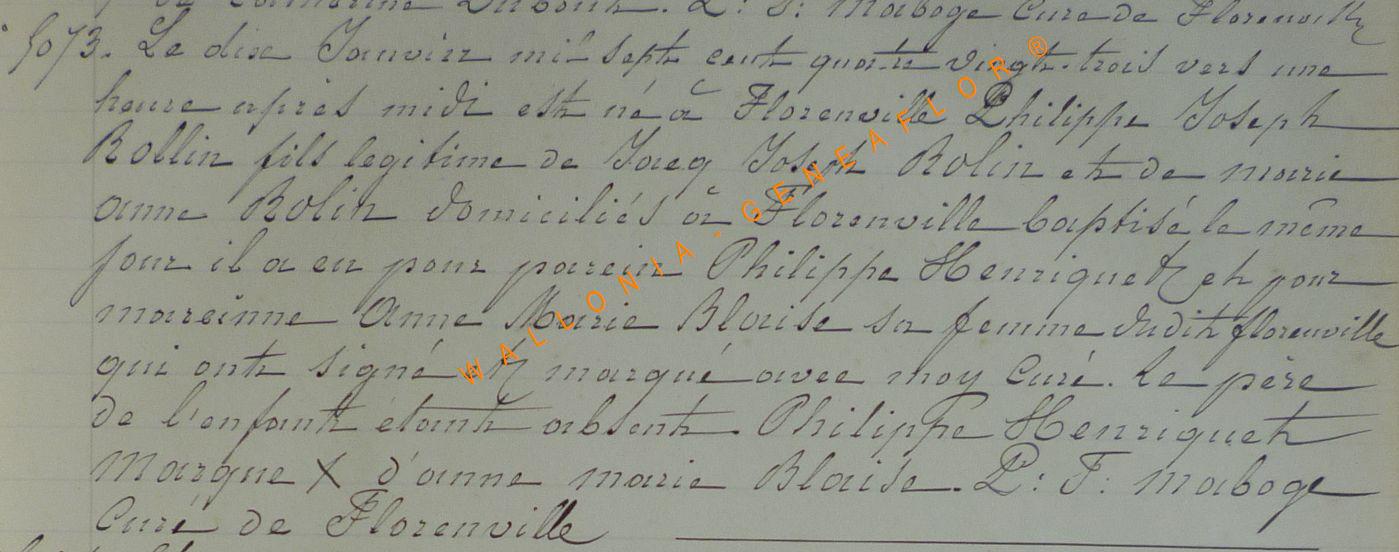 de Catharine Dubont. P: F: Maboge Curé de Florenville
5073. Le dix Janvier mil sept cent quatre vingt-trois vers une
heure après midi est né à Florenville Philippe Joseph
Rollin fils legitime de Jacq Joseph Rolin et de marie
anne Rolin domiciliés à Florenville baptisé le même
jour il a eu pour parein Philippe Henriquet et pour
mareinne Anne Marie Blaise sa femme dudit florenville
qui ont signé et marqué avec moy Curé. Le père
de l'enfant étant absent. Philippe Henriquet
Marque X d'anne marie Blaise. P: F: Maboge
Curé de Florenville
WALLONIA . GENEAFLOR ®